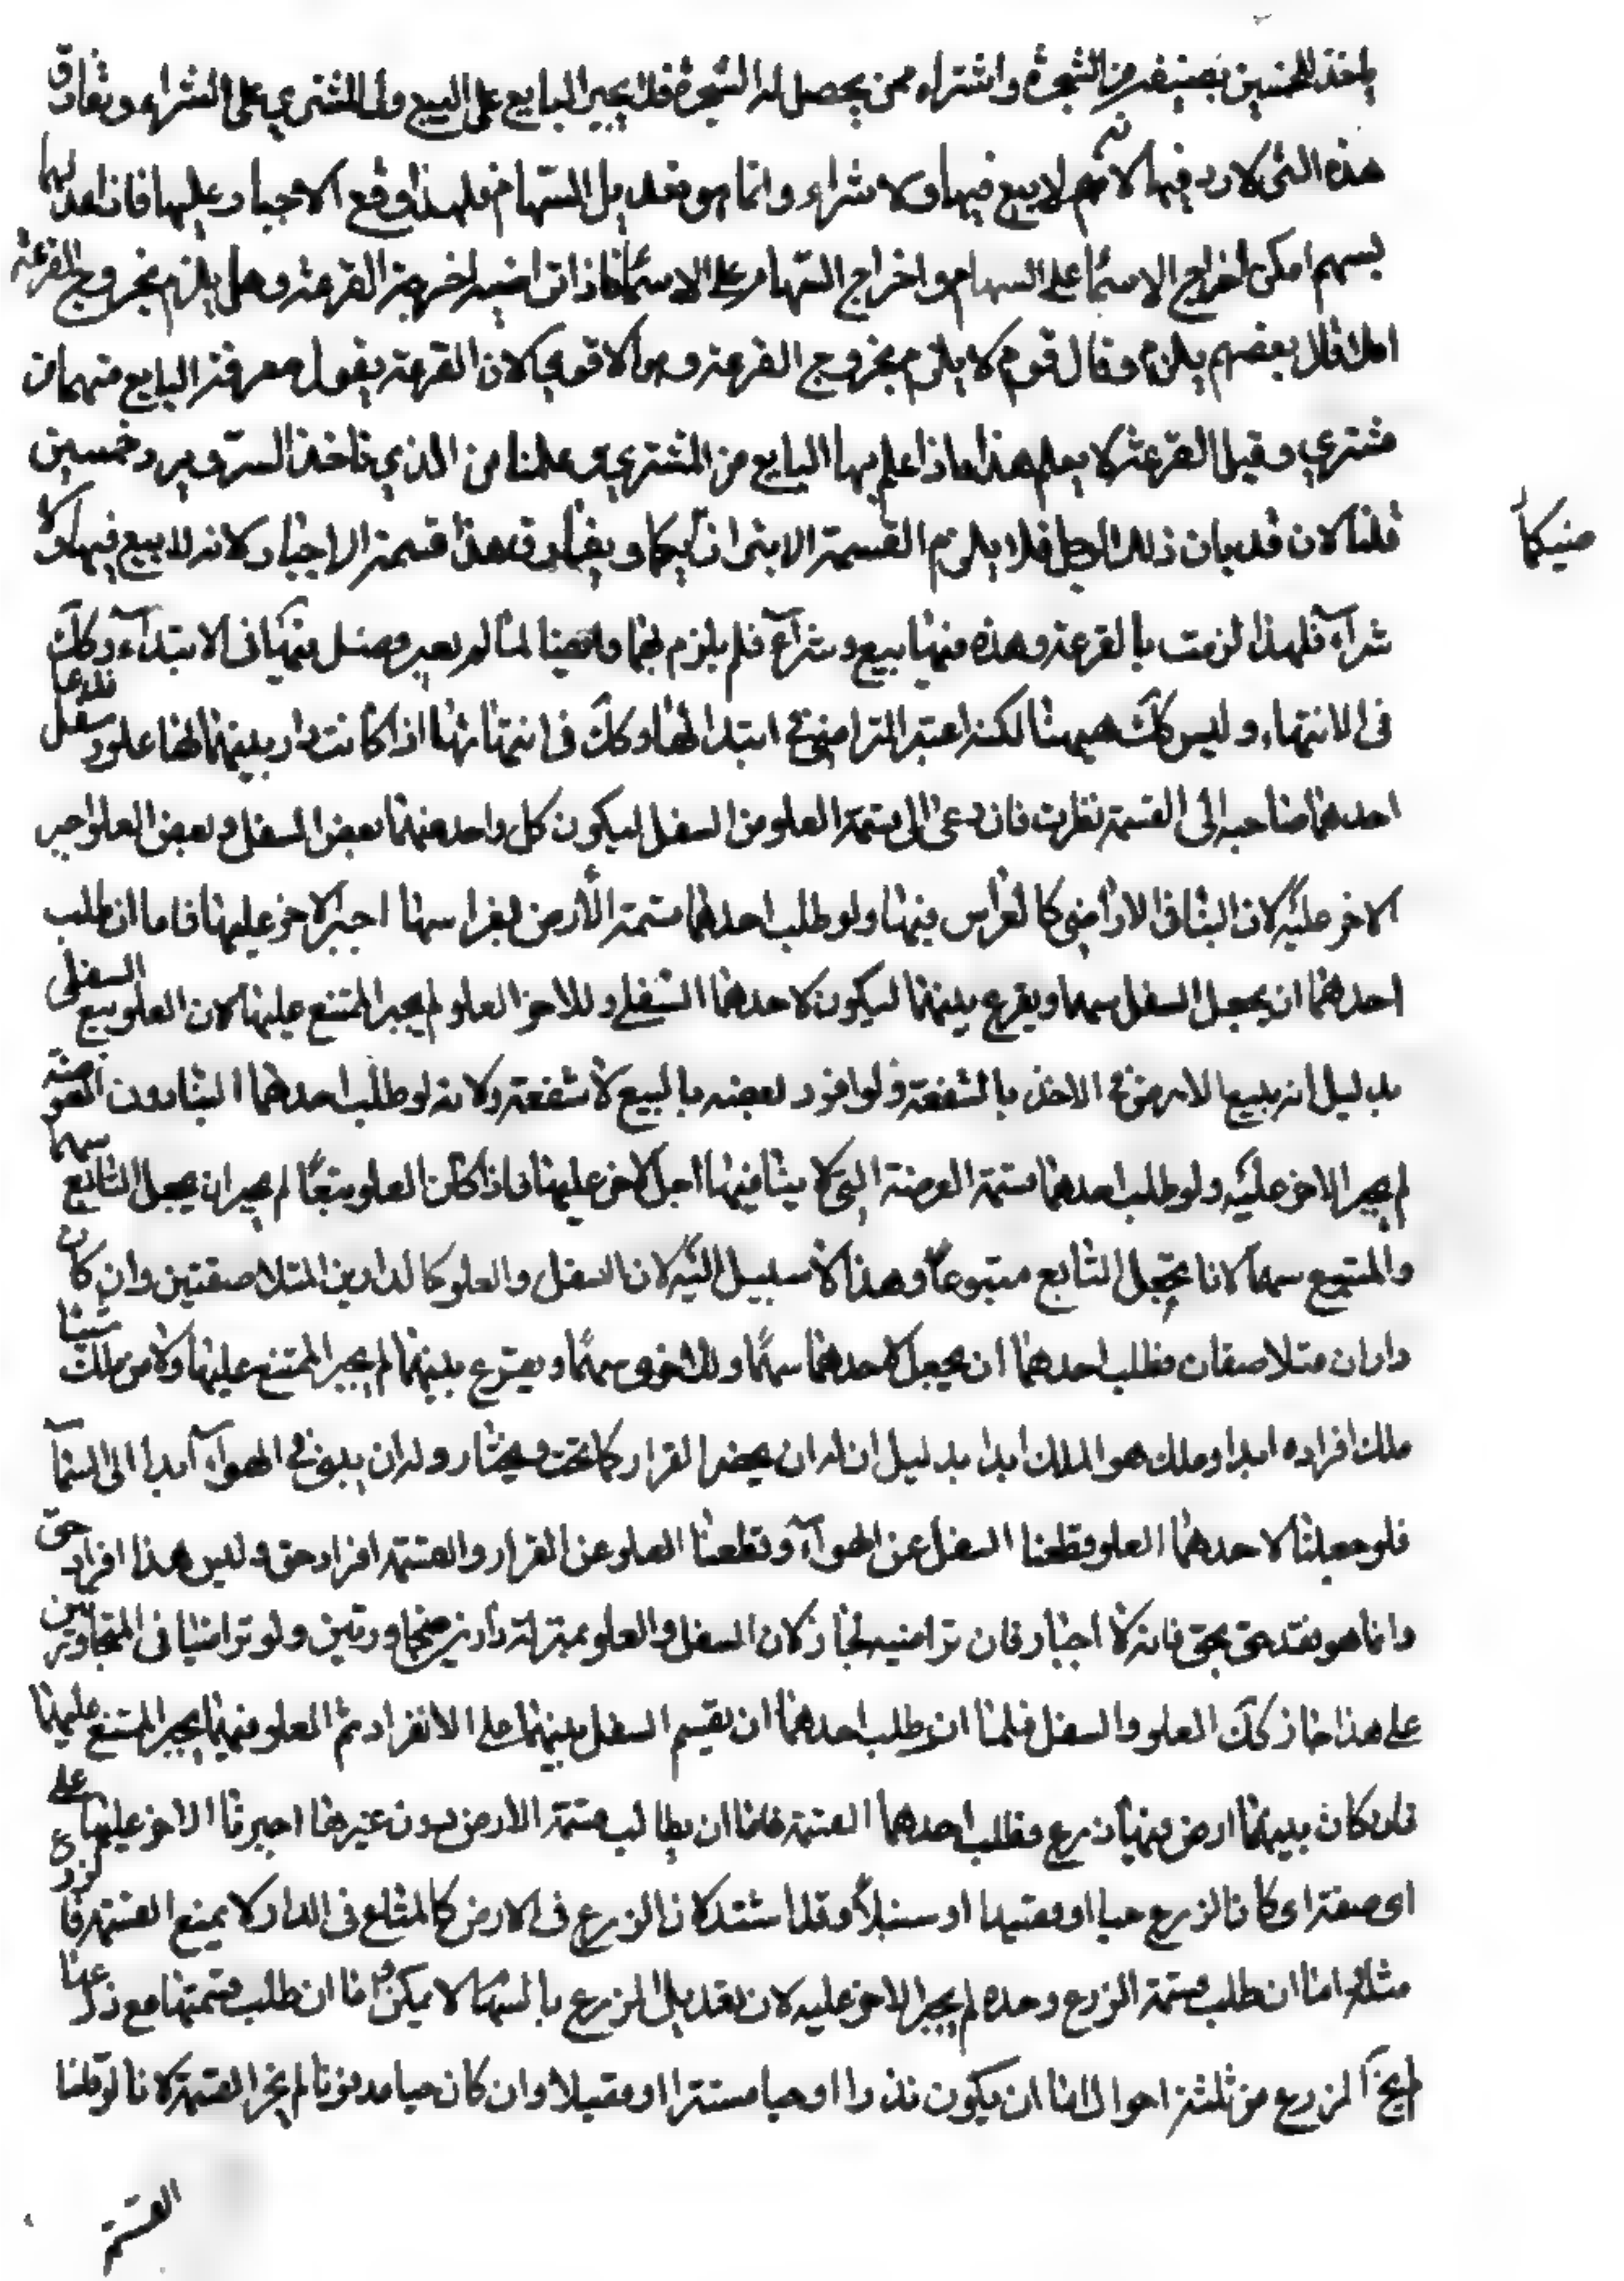 ياخذ الخمسين بنصيفه من الشجرة واشتراه ممن يحصل له الشجرة فلا يجبر البايع على البيع ولا المشتري على الشراء ويفارق
هذه التى لا رد فيها لانهم لا بيع فيها ولا شراء وانما هو تعديل السهام فلهذا وقع الاجبار عليها فاذا عدلها
بسهم امكن اخراج الاسما على السهام واخراج السهام على الاسما فاذا تراضيه اخرجت القرعة وهل يلزم بخروج القرعة
ام لا قال بعضهم يلزم وقال قوم لا يلزم بخروج القرعة وهو الاقوى لان القرعة يقول معرفة البايع منهما من
مشتري وقيل القرعة لا يعلم هذا فاذا علم بها البايع من المشتري وعلمنا من الذي ياخذ السر ويرد خمسين
قلنا الان قد بان ذلك الرجل فلا يلزم القسمة الا بتراضيهما ويفارق هذا قسمة الاجبار لانه لا بيع فيها ولا
شرآء فلهذا لزمت بالقرعة وهذه فيها بيع وشرآء فلم يلزم بها وايضا لما لم يعتبر وصل بينهما فى الابتدآء وكك
فى الانتهاء وليس كك هيهنا لكنه اعتبر التراضى فى ابتدائها وكك فى انتهائها اذا كانت دار بينهما لها علو وسفل فدعا
احدهما صاحبه الى القسمة نظرت فان دعى الى قسمة العلو من السفل ليكون كل واحد منهما بعض السفل وبعض العلو اجبر
الاخر عليه لان البنا فى الاراضى كالغراس فيها ولو طلب احدهما قسمة الارض بغراسها اجبر الاخر عليها فاما ان طلب
احدهما ان يجعل السفل سهما ويقرع بينهما ليكون لاحدهما السفلى وللاخر العلو لم يجبر الممتنع عليها لان العلو يبيع السفلى
بدليل انه يبيع الارض فى الاخذ بالشفعة ولو افرد بعضه بالبيع لا شفعة ولانه لو طلب احدهما البنا دون العرصة
لم يجبر الاخر عليه ولو طلب احدهما قسمة العرصة التى لا بنا فيها اجبر الاخر عليها فاذا كان العلو متبعًا لم يجز ان يجعل التابع سهما
والمتبوع سهما لانا نجعل التابع متبوعًا وهذا لا سبيل اليه لان السفل والعلو كالدارين المتلاصقتين وان كان
داران متلاصقان فطلب احدهما ان يجعل لاحدهما سهمًا وللاخرى سهمًا ويقترع بينهما لم يجبر الممتنع عليها ولان من ملك شيئا
ملك افراده ابدا وملك هوا الملك ابدا بدليل ان له ان يحفر القرار كما تحت ويختار وله ان يبنى فى الهوآء ابدا الى السمآء
فلو جعلنا لاحدهما العلو وقطعنا السفل عن الهوآء وقطعنا العلو عن القرار والقسمة افراد حق وليس هذا افراد حق
وانما هو نقد حق بحق فانه لا اجبار فان تراضيه لجاز لان السفل والعلو بمنزلة دارين متجاورتين ولو تراضيا فى المتجاورتين
على هذا جاز كك العلو والسفل قلنا ان طلب احدهما ان يقسم السفل بينهما على الانفراد ثم العلو منهما يجبر الممتنع عليهما
فان كان بينهما ارض فيها زرع فطلب احدهما القسمة فاما ان يطالب قسمة الارض دون غيرها اجبرنا الاخر عليها على
اى صفة اى كان الزرع حبا او قصيلا او سنبلًا وقد اشتد لان الزرع فى الارض كالمتاع فى الدار لا يمنع القسمة فالزرع
مثله اما ان طلب قسمة الزرع وحده لم يجبر الاخر عليه لان تعديل الزرع بالسهما لا يمكن اما ان طلب قسمتها مع زرعها
لم يخل الزرع من ثلثة احوال اما ان يكون نذرا او حبا مستترا او قصيلا وان كان حبا مدفونا لم يجز القسمة لانا لو قلنا
القسمة